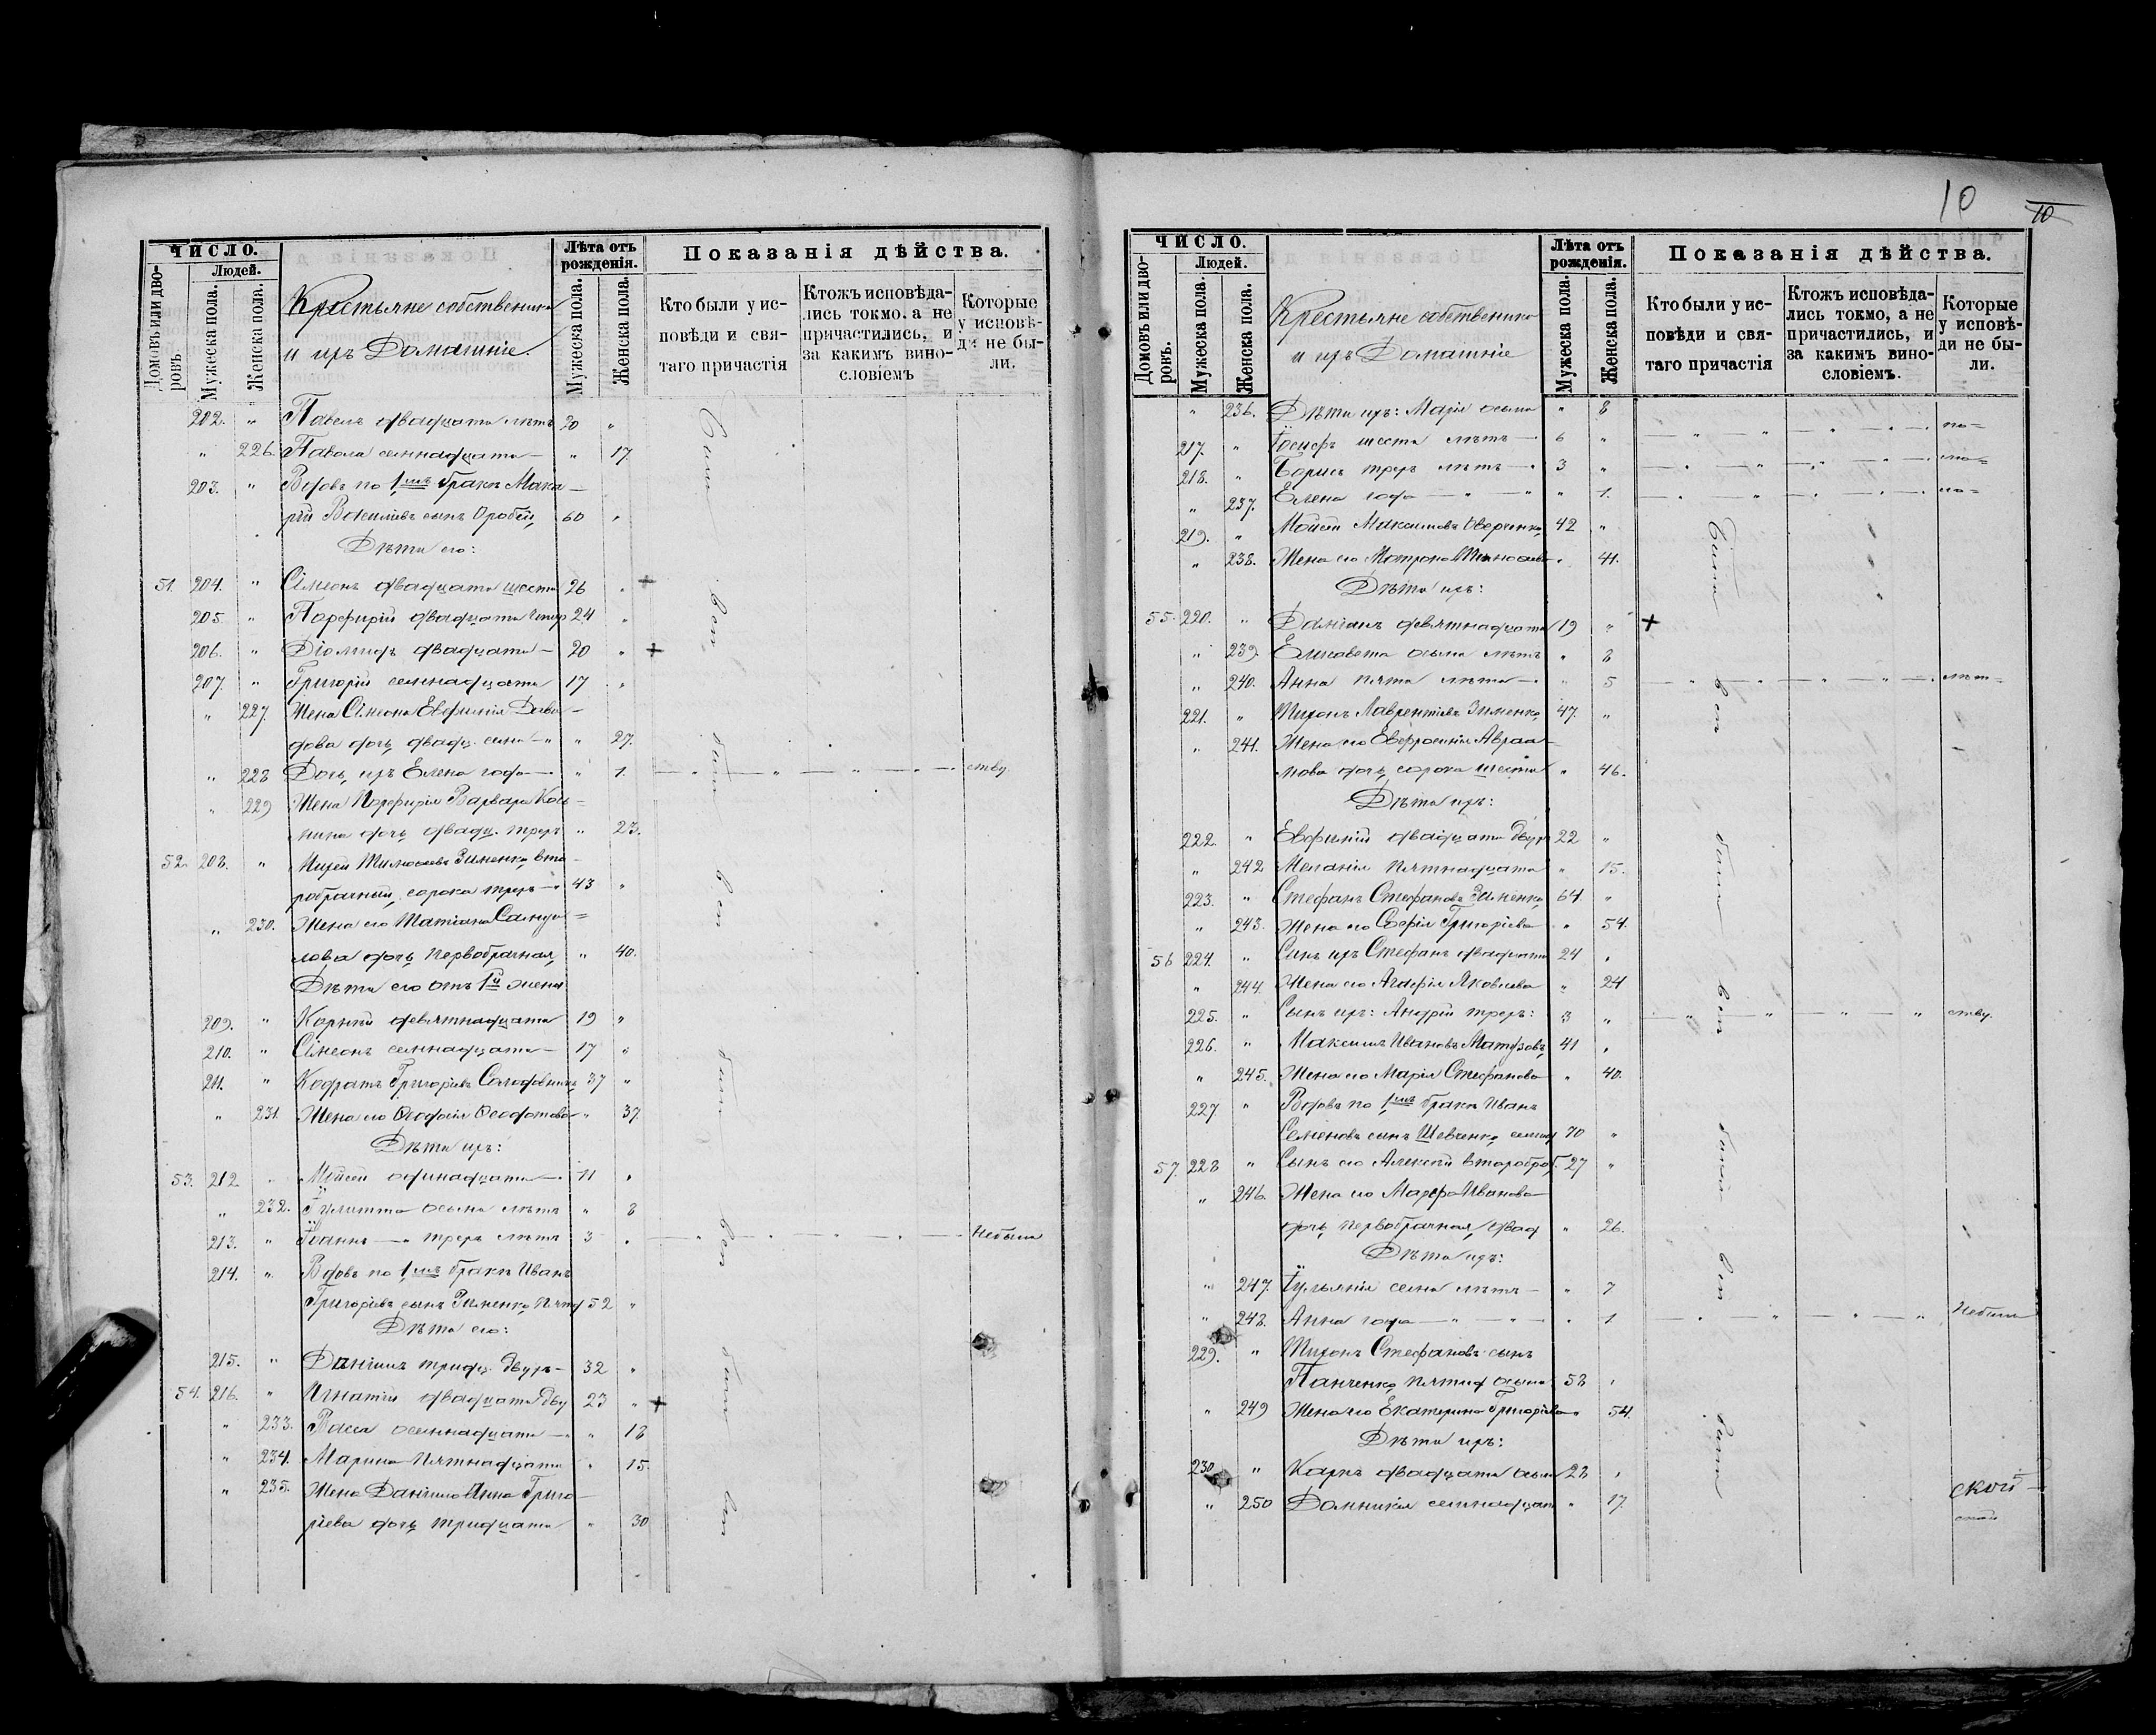 ЧИСЛО.
Людей.
Домовъ или дво-
ровъ.
Мужеска пола.
Женска пола.
Крестьяне собственники
и ихъ Домашніе.
Лѣта отъ
рожденія.
Мужеска пола.
Женска пола.
Показанія дѣйства.
Кто были у ис-
повѣди и свя-
таго причастія
Ктожъ исповѣда-
лись токмо, а не
причастились, и
за какимъ вино-
словіемъ
Которые
у исповѣ-
ди не бы-
ли.
202. " Павелъ двадцати лѣтъ 20 "
" 226. Павла семнадцати — " 17
203. " Вдовъ по 1мъ бракѣ Мака-
рій Васильевъ сынъ 60 "
Дѣти его:
51. 204. " Сѵмеонъ двадцати шести 26 " +
205. " Парфирій двадцати четыр 24 "
206. " Діомидъ двадцати — 20 " +
207. " Григорій семнадцати 17 "
" 227. Жена Сѵмеона Евфимія Дави-
дова дочь двадц. семи — " 27.
" 228 Дочь ихъ Елена года — " 1. — " — " — " — ству
" 229 Жена Парфирія Варвара Кось-
мина дочь двадц. трехъ " 23.
52. 208. " Михей Тимофеевъ Зименко, вто-
робрачный, сорока трехъ — 43 "
" 230. Жена его Татіана Самуи=
лова дочь первобрачная, " 40.
Дѣти его отъ 1й жены
209. " Корнилій девятнадцати 19 "
210. " Сѵмеонъ семнадцати — 17 "
211. " Кодратъ Григоріевъ 37 "
" 231. Жена его Ѳеодосія Ѳеодотова " 37.
Дѣти ихъ:
53. 212. " Мѡисей одинадцати — 11 "
" 232. Іулитта осьми лѣтъ " 8
213. " Іоаннъ — " трехъ лѣтъ 3 " — " — " — " — Небыли
214. " Вдовъ по 1мъ бракѣ Иванъ
Григоріевъ сынъ Зименко, пятид 52 "
Дѣти его:
215. " Даніилъ тридц. двухъ — 32 "
54. 216. " Игнатій двадцати 23 " +
" 233. Васса осемнадцати — " 18
" 234. Марина пятнадцати " 15.
" 235. Жена Даніила Анна Григо-
ріева дочь тридцати " 30
Были
Всп
Были
Всп
Были
Всп
Были
Всп
10
10
ЧИСЛО.
Людей.
Домовъ или дво-
ровъ.
Мужеска пола.
Женска пола.
Крестьяне собственники
и ихъ Домашніе
Лѣта отъ
рожденія.
Мужеска пола.
Женска пола.
Показанія дѣйства.
Кто были у ис-
повѣди и свя-
таго причастія
Ктожъ исповѣда-
лись токмо, а не
причастились, и
за какимъ вино-
словіемъ.
Которые
у исповѣ-
ди не бы-
ли.
" 236. Дѣти ихъ: Марія осьми " 8 — " — " — " — по=
217. " Іосифъ шести лѣтъ — 6 "
218. " Борисъ трехъ лѣтъ — 3 " — " — " — " — мо=
" 237. Елена года — " — " " 1. — " — " — " — ло=
219. " Мойсей Максимовъ 42 "
" 238. Жена его Матрона " 41.
Дѣти ихъ:
55. 220. " Даміанъ девятнадцати 19 " +
" 239. Елисавета осьми лѣтъ " 8
" 240. Анна пяти лѣтъ — " 5 — " — " — " — лѣт=
221. " Тихонъ Лаврентіевъ Зименко, 47. "
" 241. Жена его Евфросинія Авраа-
мова дочь сорока шести " 46.
Дѣти ихъ:
222. " Евфимій двадцати двухъ 22 "
" 242 Меланія пятнадцати " 15.
223. " Стефанъ Стефановъ Зименко, 64. "
" 243. Жена его Софія Григоріева " 54.
56 224. " Сынъ ихъ Стефанъ двадцати 24 "
" 244. Жена его Агафія Яковлева " 24
225. " Сынъ ихъ: Андрій трехъ: 3 " — " — " — " — ству.
226. " Максимъ Ивановъ 41 "
" 245. Жена его Марія Стефанова " 40.
227 " Вдовъ по 1мъ бракѣ Иванъ
Семеновъ сынъ Шевченко, семид 70 "
57. 228 " Сынъ его Алексѣй второбр. 27 "
" 246. Жена его Марфа Иванова
дочь первобрачная, двад " 26.
Дѣти ихъ:
" 247. Іуліанія семи лѣтъ — " 7
" 248. Анна года — " — " — " 1 — " — " — " — Небыли
229. " Тихонъ Стефановъ сынъ
Панченко, пятид осьми 58 "
" 249 Жена его Екатерина Григоріева " 54.
Дѣти ихъ:
230 " Карпъ двадцати осьми 28 "
" 250 Домникія семнадцати " 17.
Были
Всп
Были
Всп
Были
Всп
Были
ской